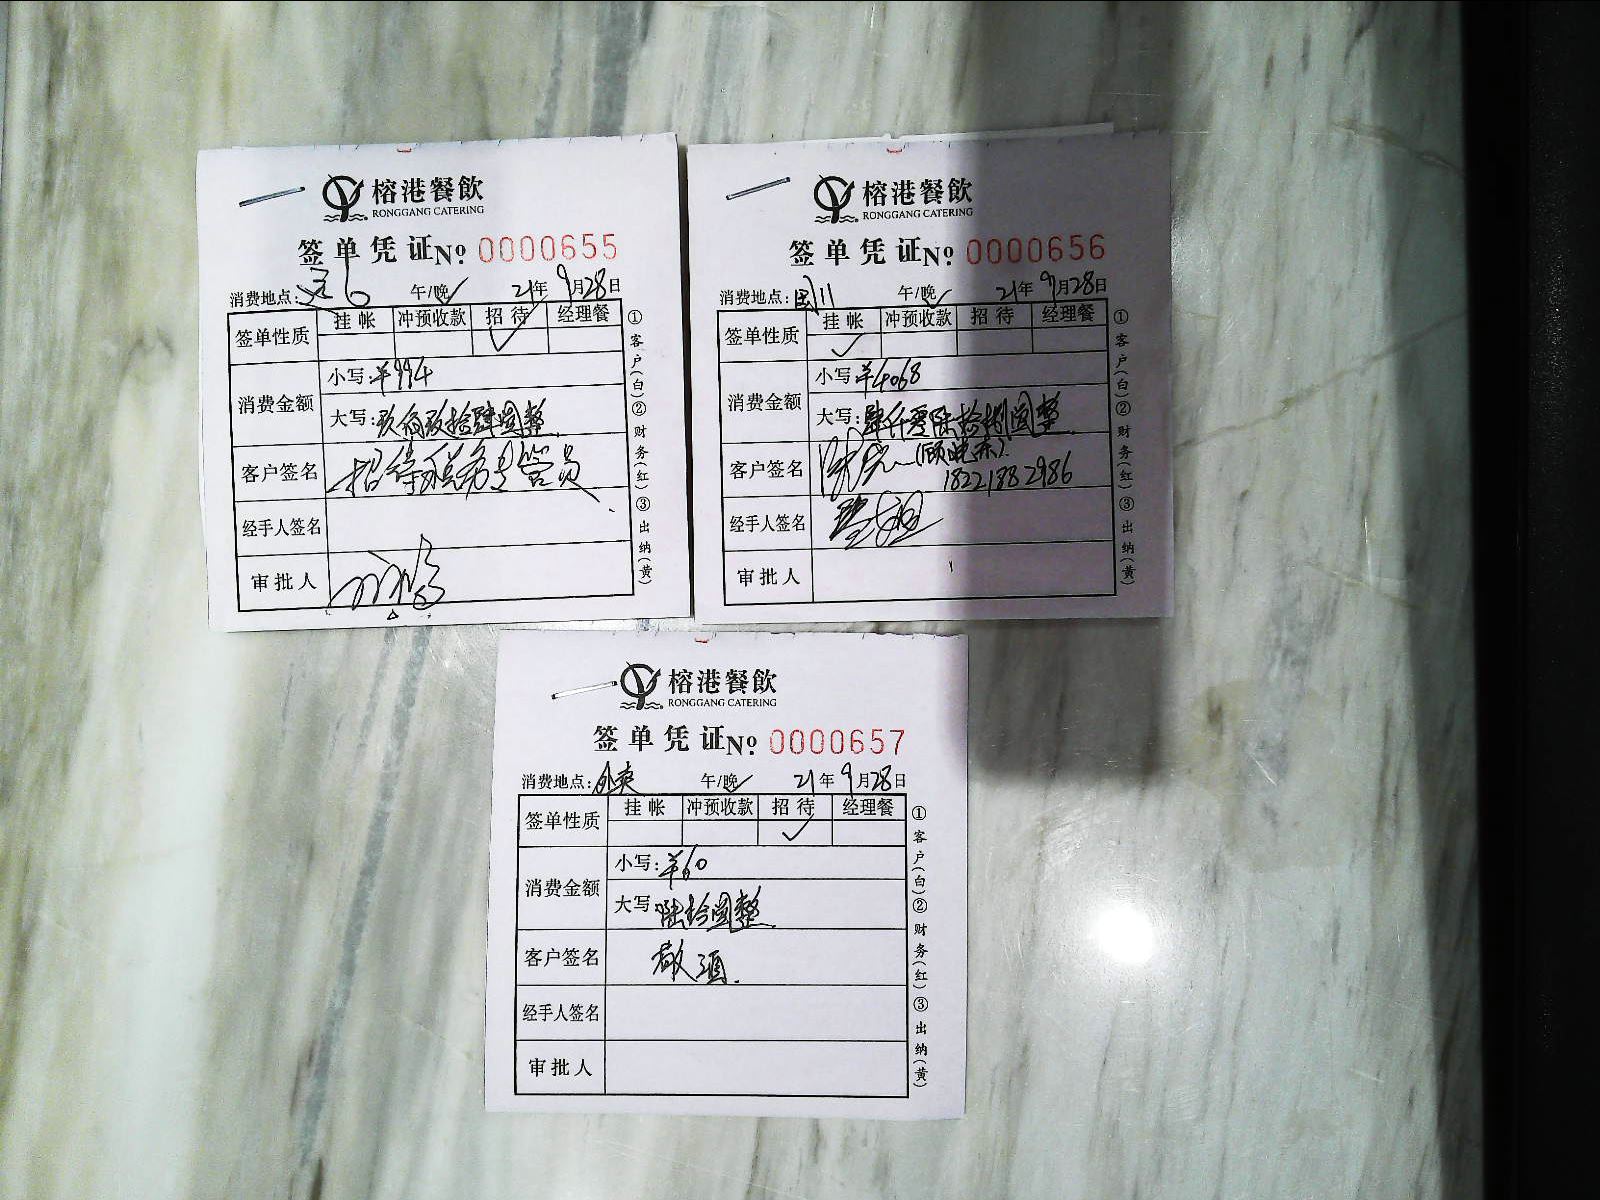 榕港餐飲
RONGGANG CATERING
签单凭证 No. 0000655
消费地点: 午/晚 21年9月28日
签单性质 挂帐 冲预收款 招待 经理餐
消费金额
小写:¥994
大写:玖佰玖拾肆圆整
客户签名 招待税务专管员
经手人签名
审批人
①客户(白)②财务(红)③出纳(黄)
榕港餐飲
RONGGANG CATERING
签单凭证 No. 0000656
消费地点: 午/晚 21年9月28日
签单性质 挂帐 冲预收款 招待 经理餐
消费金额
小写:¥4068
大写:肆仟零陆拾捌圆整
客户签名
18221882986
经手人签名
审批人
①客户(白)②财务(红)③出纳(黄)
榕港餐飲
RONGGANG CATERING
签单凭证 No. 0000657
消费地点:外卖 午/晚 21年9月28日
签单性质 挂帐 冲预收款 招待 经理餐
消费金额
小写:¥60
大写:陆拾圆整
客户签名 敬酒.
经手人签名
审批人
①客户(白)②财务(红)③出纳(黄)